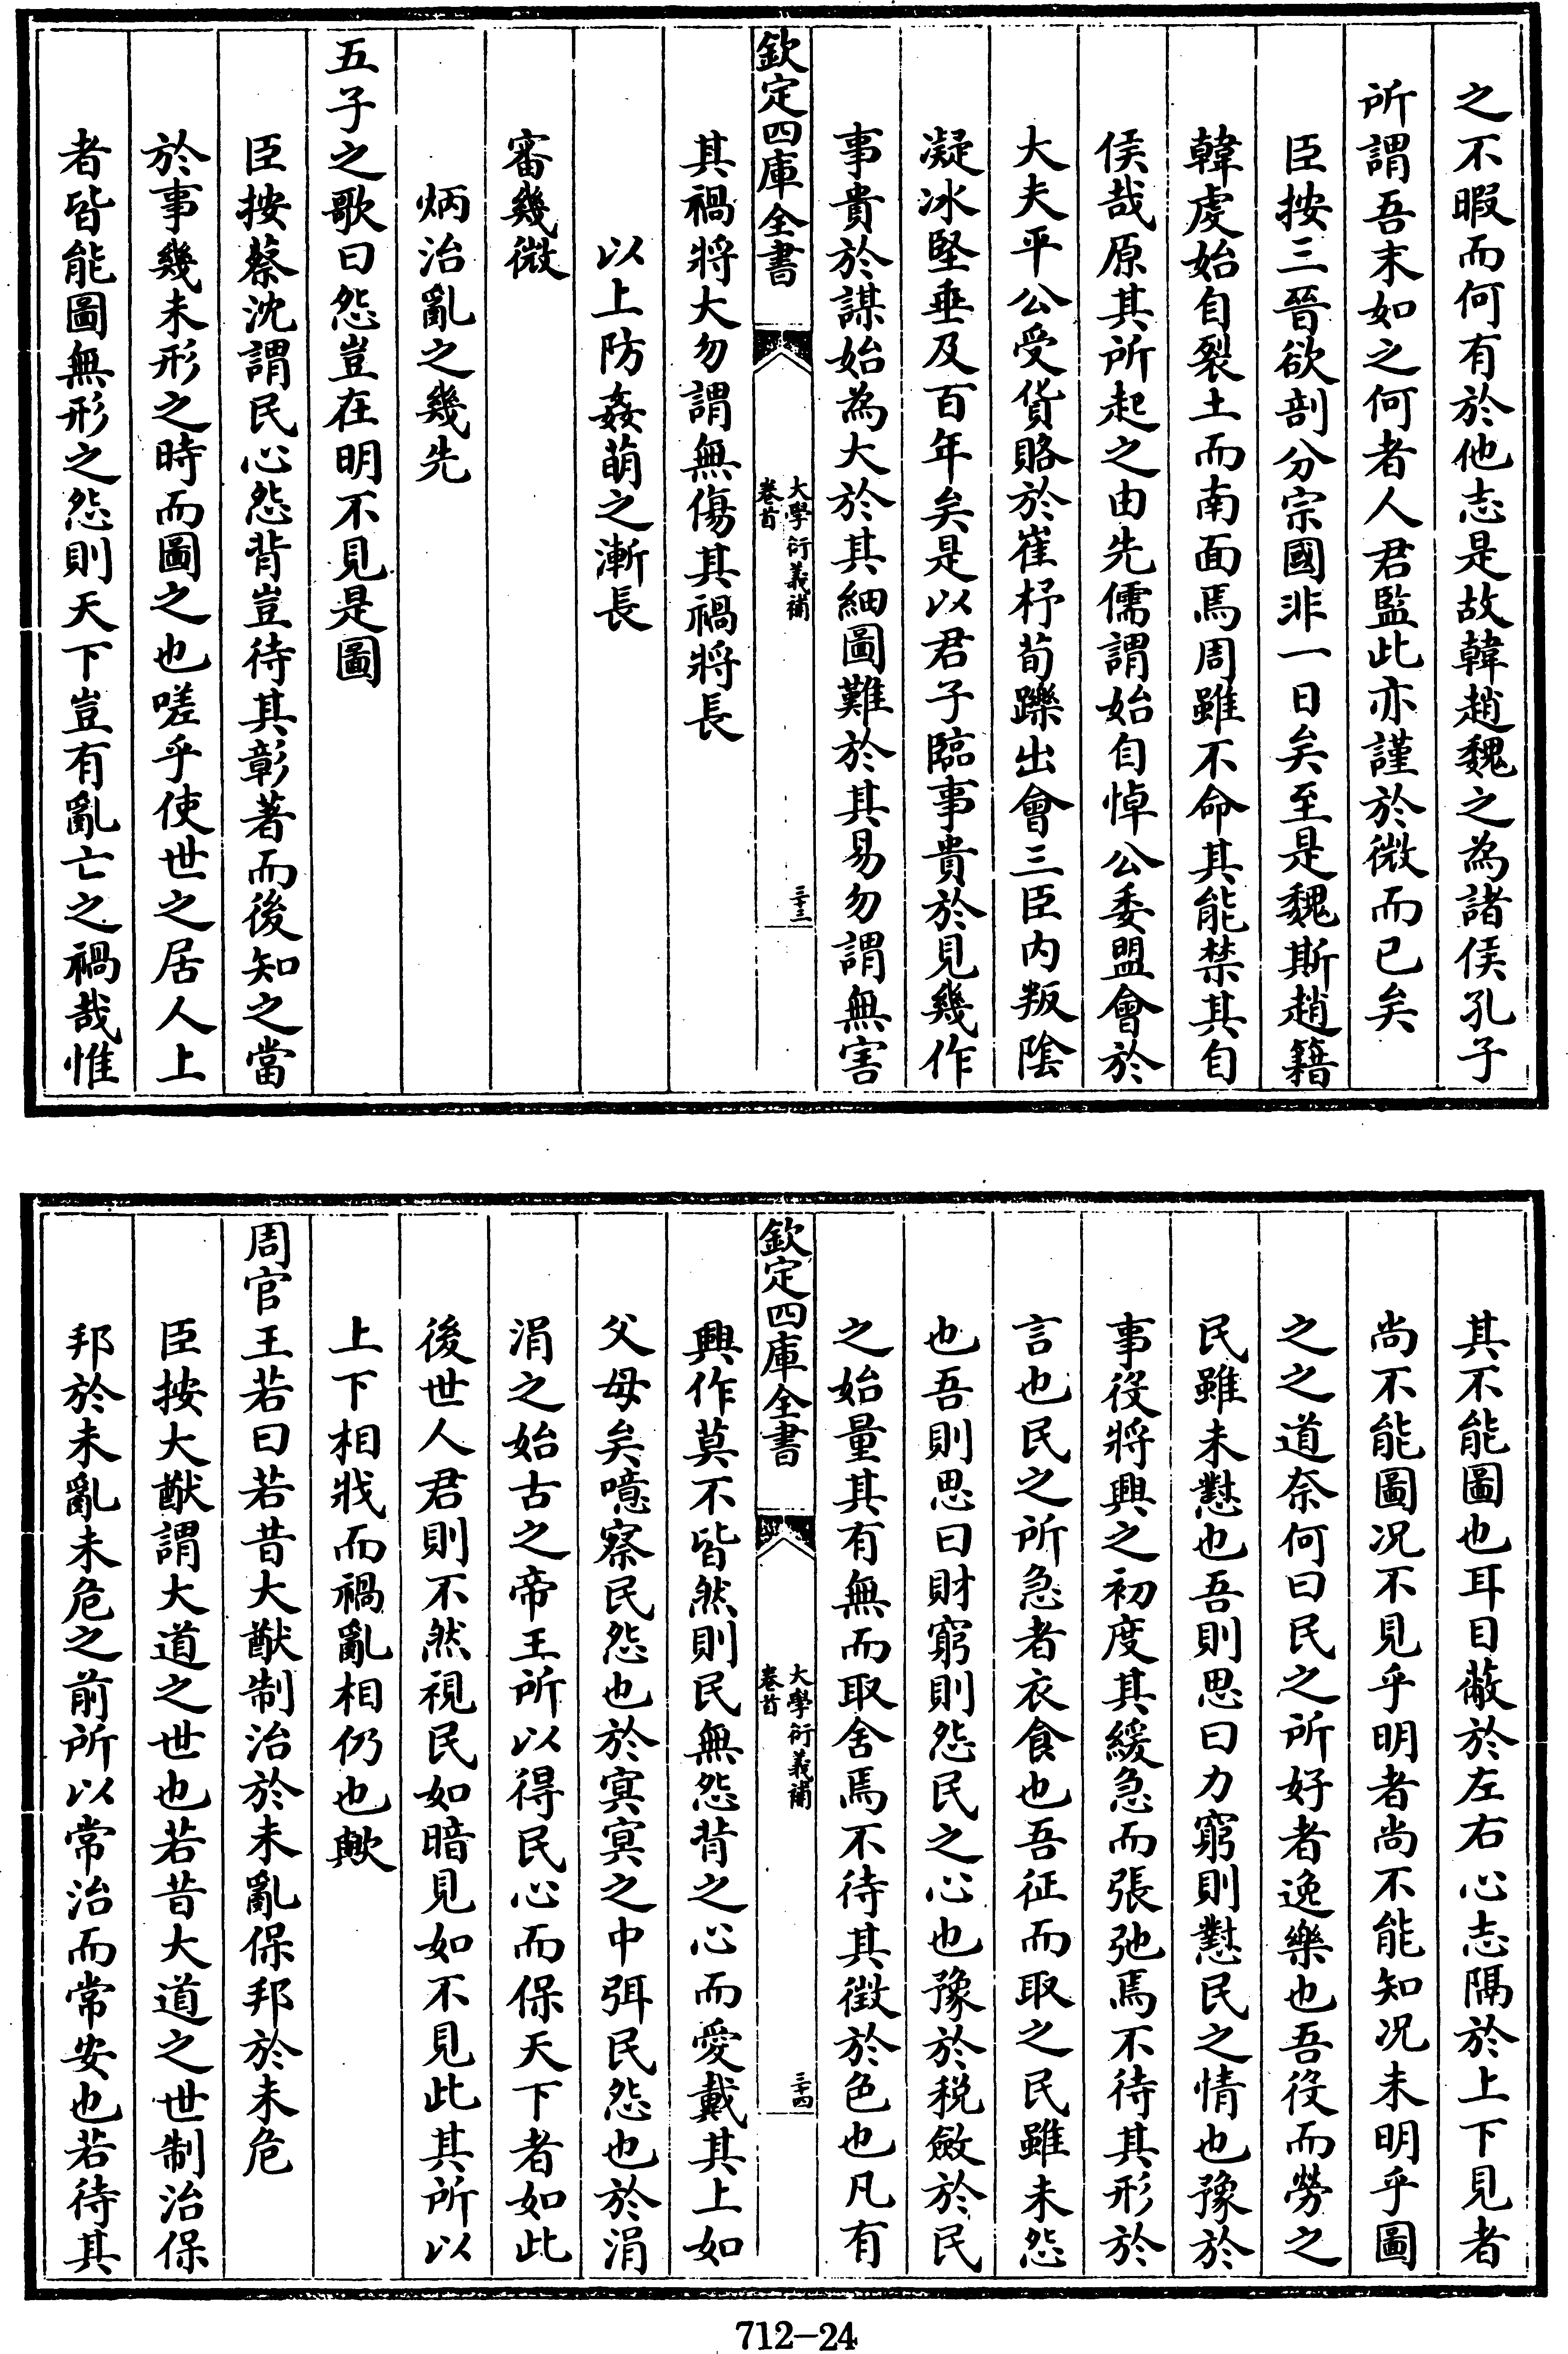 之不暇而何有於他志是故韓趙魏之為諸侯孔子
所謂吾末如之何者人君監此亦謹於微而已矣
臣按三晉欲剖分宗國非一日矣至是魏斯趙籍
韓虔始自裂土而南面焉周雖不命其能禁其自
侯哉原其所起之由先儒謂始自悼公委盟會於
大夫平公受貨賂於崔杼荀躒出會三臣内叛陰
凝冰堅垂及百年矣是以君子臨事貴於見幾作
事貴於謀始為大於其細圖難於其易勿謂無害
欽定四庫全書
大學衍義補
卷首
三十三
其禍將大勿謂無傷其禍將長
以上防姦萌之漸長
審幾微
炳治亂之幾先
五子之歌曰怨豈在明不見是圖
臣按蔡沈謂民心怨背豈待其彰著而後知之當
於事幾未形之時而圖之也嗟乎使世之居人上
者皆能圖無形之怨則天下豈有亂亡之禍哉惟
其不能圖也耳目蔽於左右心志隔於上下見者
尚不能圖况不見乎明者尚不能知况未明乎圖
之之道奈何曰民之所好者逸樂也吾役而勞之
民雖未懟也吾則思曰力窮則懟民之情也豫於
事役將興之初度其緩急而張弛焉不待其形於
言也民之所急者衣食也吾征而取之民雖未怨
也吾則思曰財窮則怨民之心也豫於税斂於民
之始量其有無而取舍焉不待其徵於色也凡有
欽定四庫全書
大學衍義補
卷首
三十四
興作莫不皆然則民無怨背之心而愛戴其上如
父母矣噫察民怨也於冥冥之中弭民怨也於涓
涓之始古之帝王所以得民心而保天下者如此
後世人君則不然視民如暗見如不見此其所以
上下相戕而禍亂相仍也歟
周官王若曰若昔大猷制治於未亂保邦於未危
臣按大猷謂大道之世也若昔大道之世制治保
邦於未亂未危之前所以常治而常安也若待其
712-24